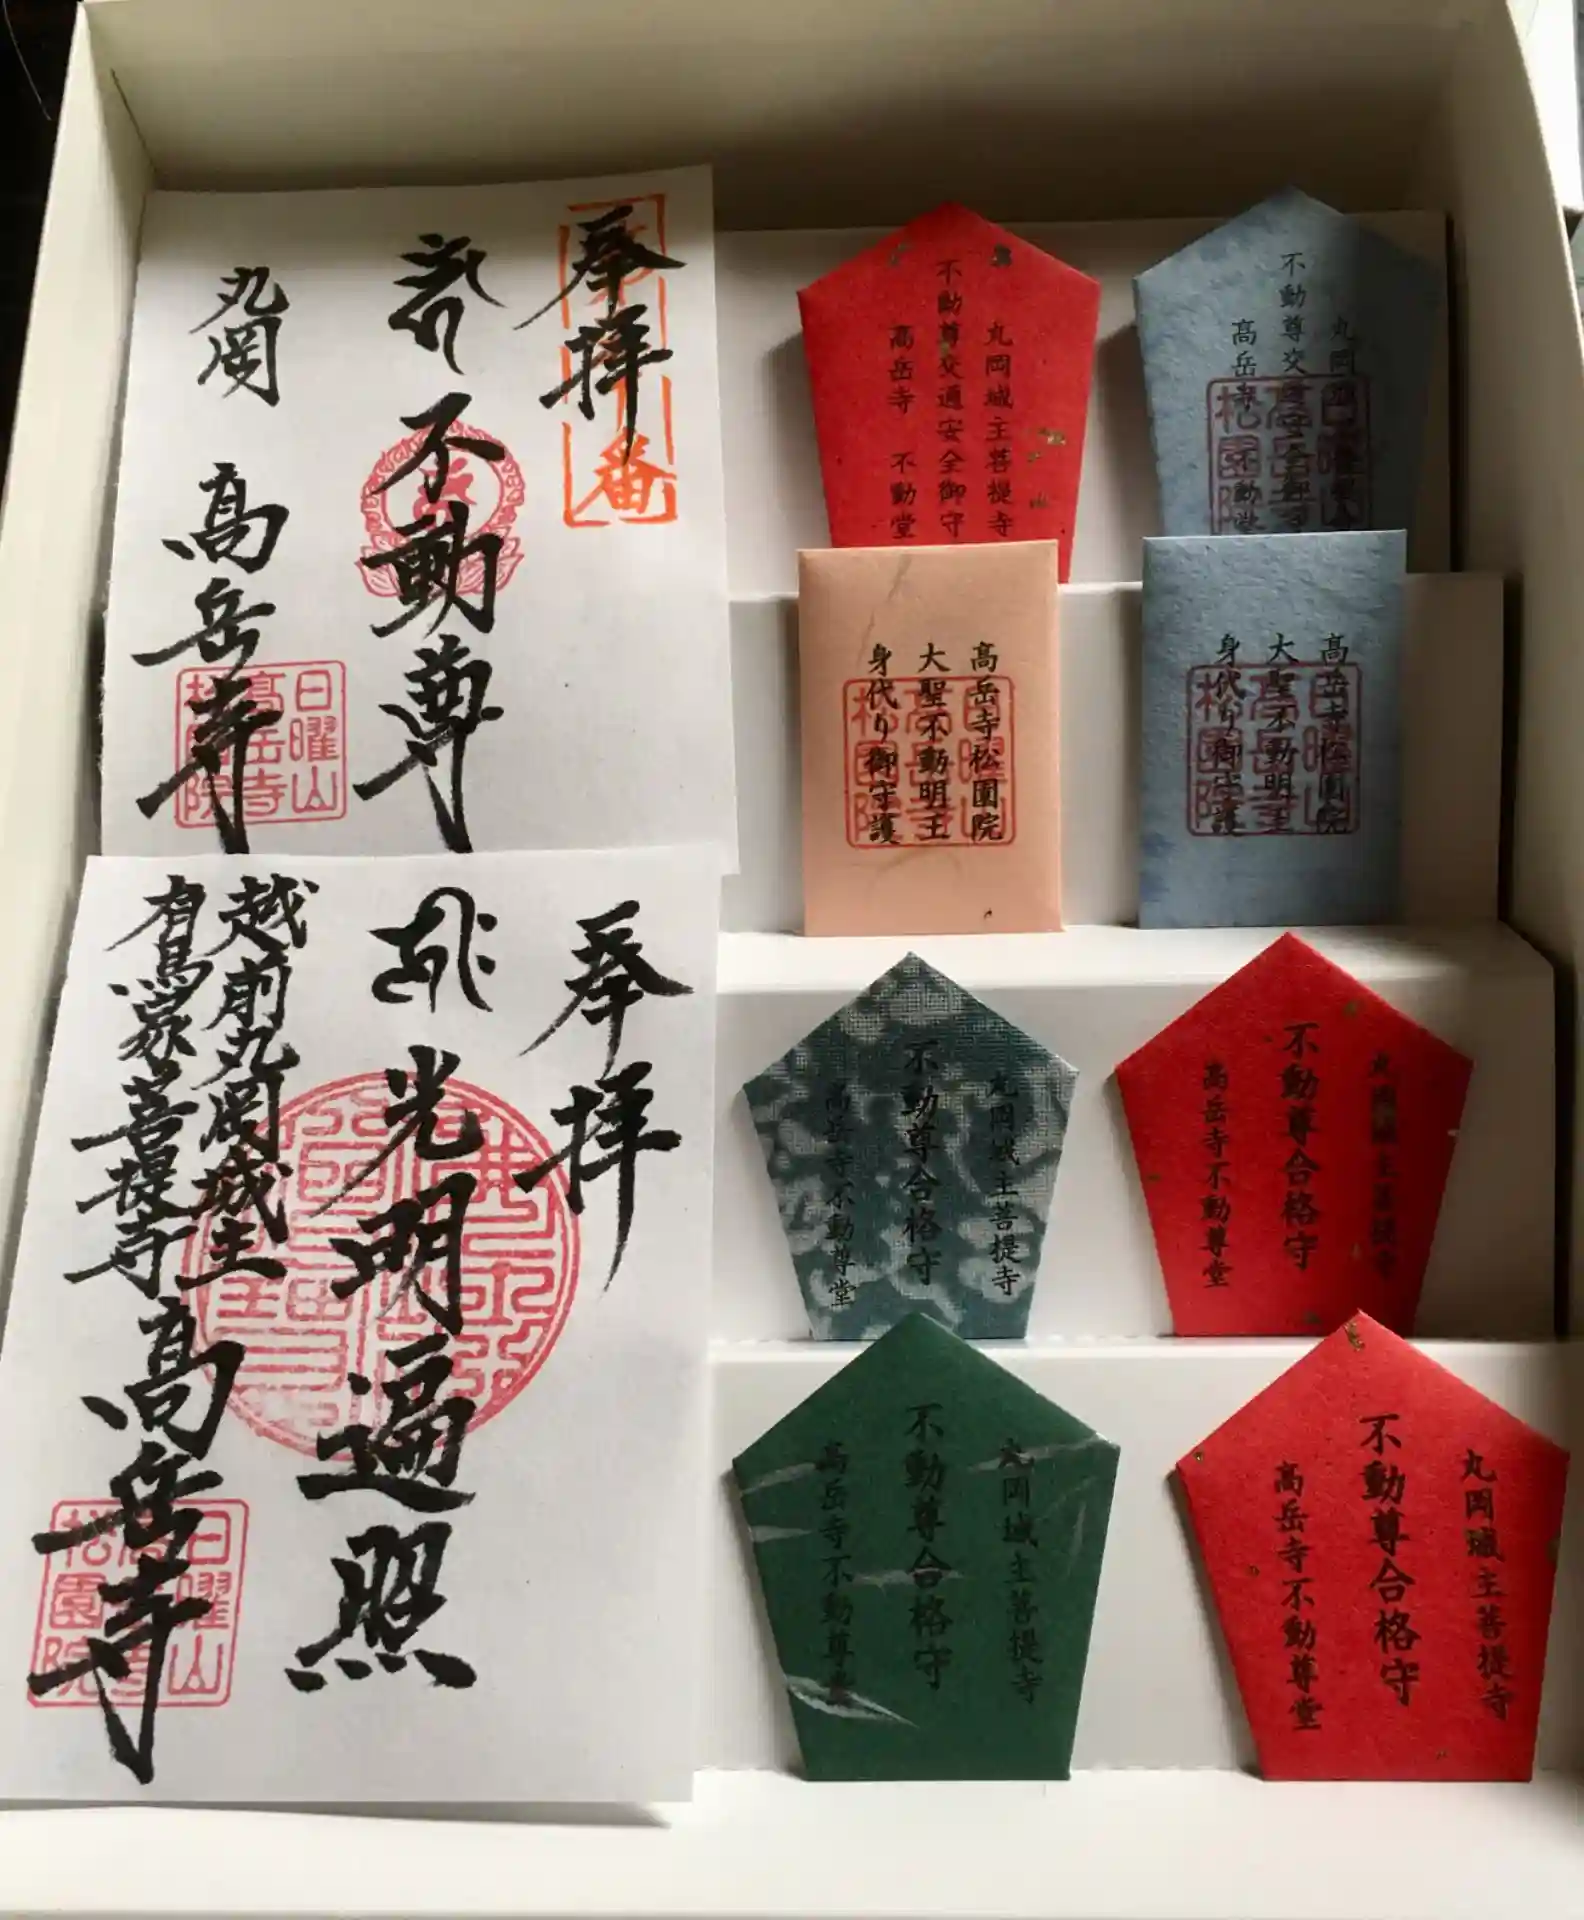 奉拝
不動尊
丸岡 高岳寺
日曜山
高岳寺
松園院
番
奉拝
光明遍照
越前丸岡城主
有馬家菩提寺
高岳寺
日曜山
松園院
丸岡城主菩提寺
不動尊交通安全御守
高岳寺 不動堂
丸岡
不動尊交
高岳寺 不動堂
高岳寺松園院
大聖不動明王
身代り御守護
高岳寺松園院
大聖不動明王
身代り御守護
丸岡城主菩提寺
不動尊合格守
高岳寺不動尊堂
丸岡城主菩提寺
不動尊合格守
高岳寺不動尊堂
丸岡城主菩提寺
不動尊合格守
高岳寺不動尊堂
丸岡城主菩提寺
不動尊合格守
高岳寺不動尊堂